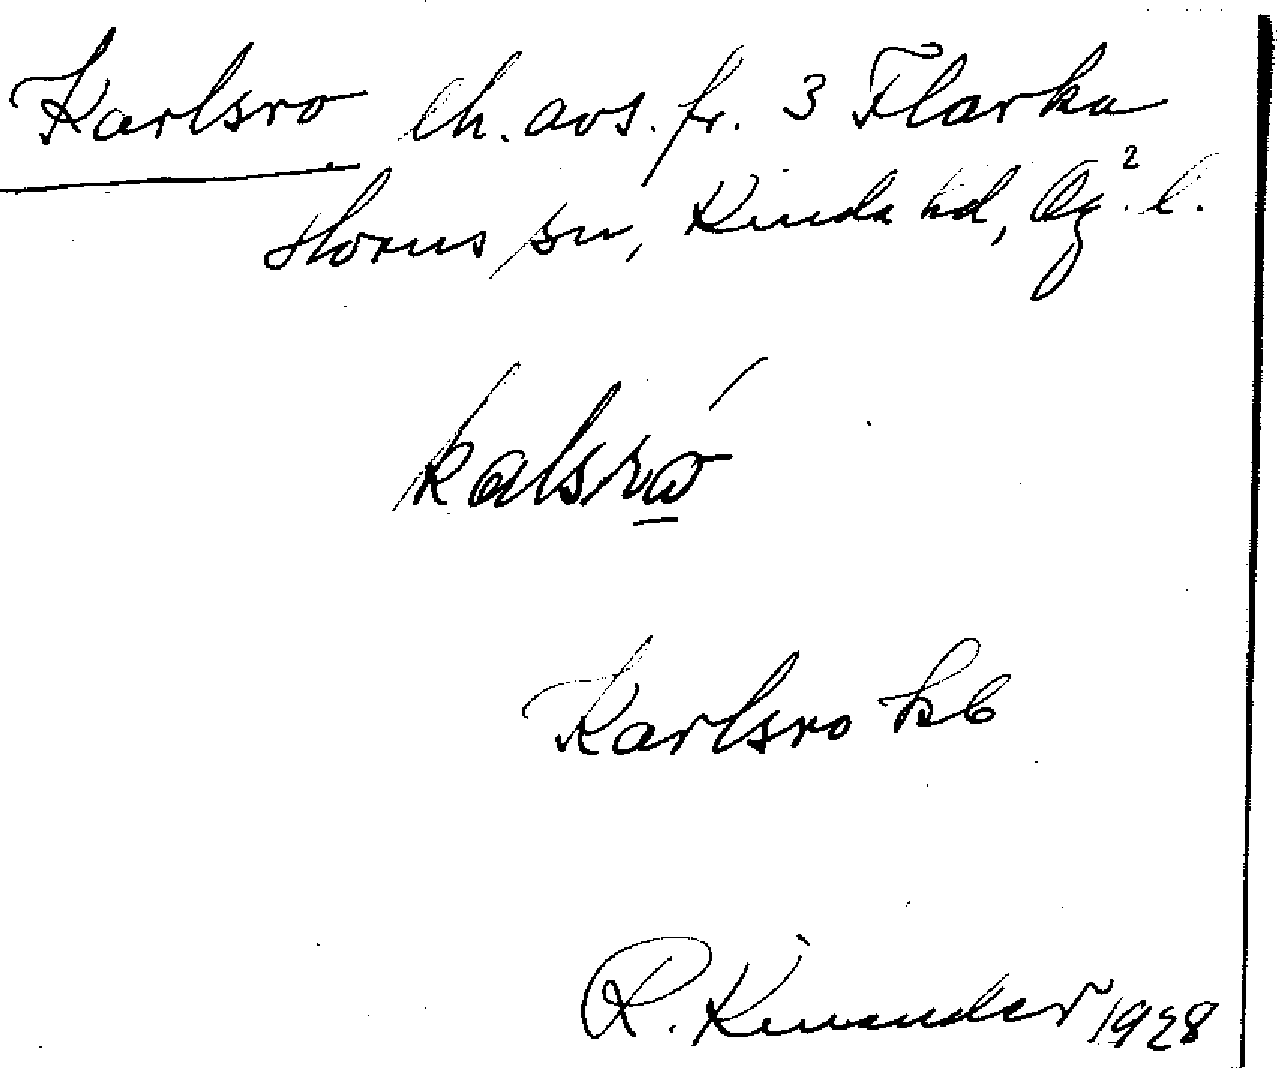 Karlsro lh. avs. fr. 3 Flarka
Horns sn, Kinda hd, Ög. l.
kalsro
Karlsro kb
R. Kinander 1928